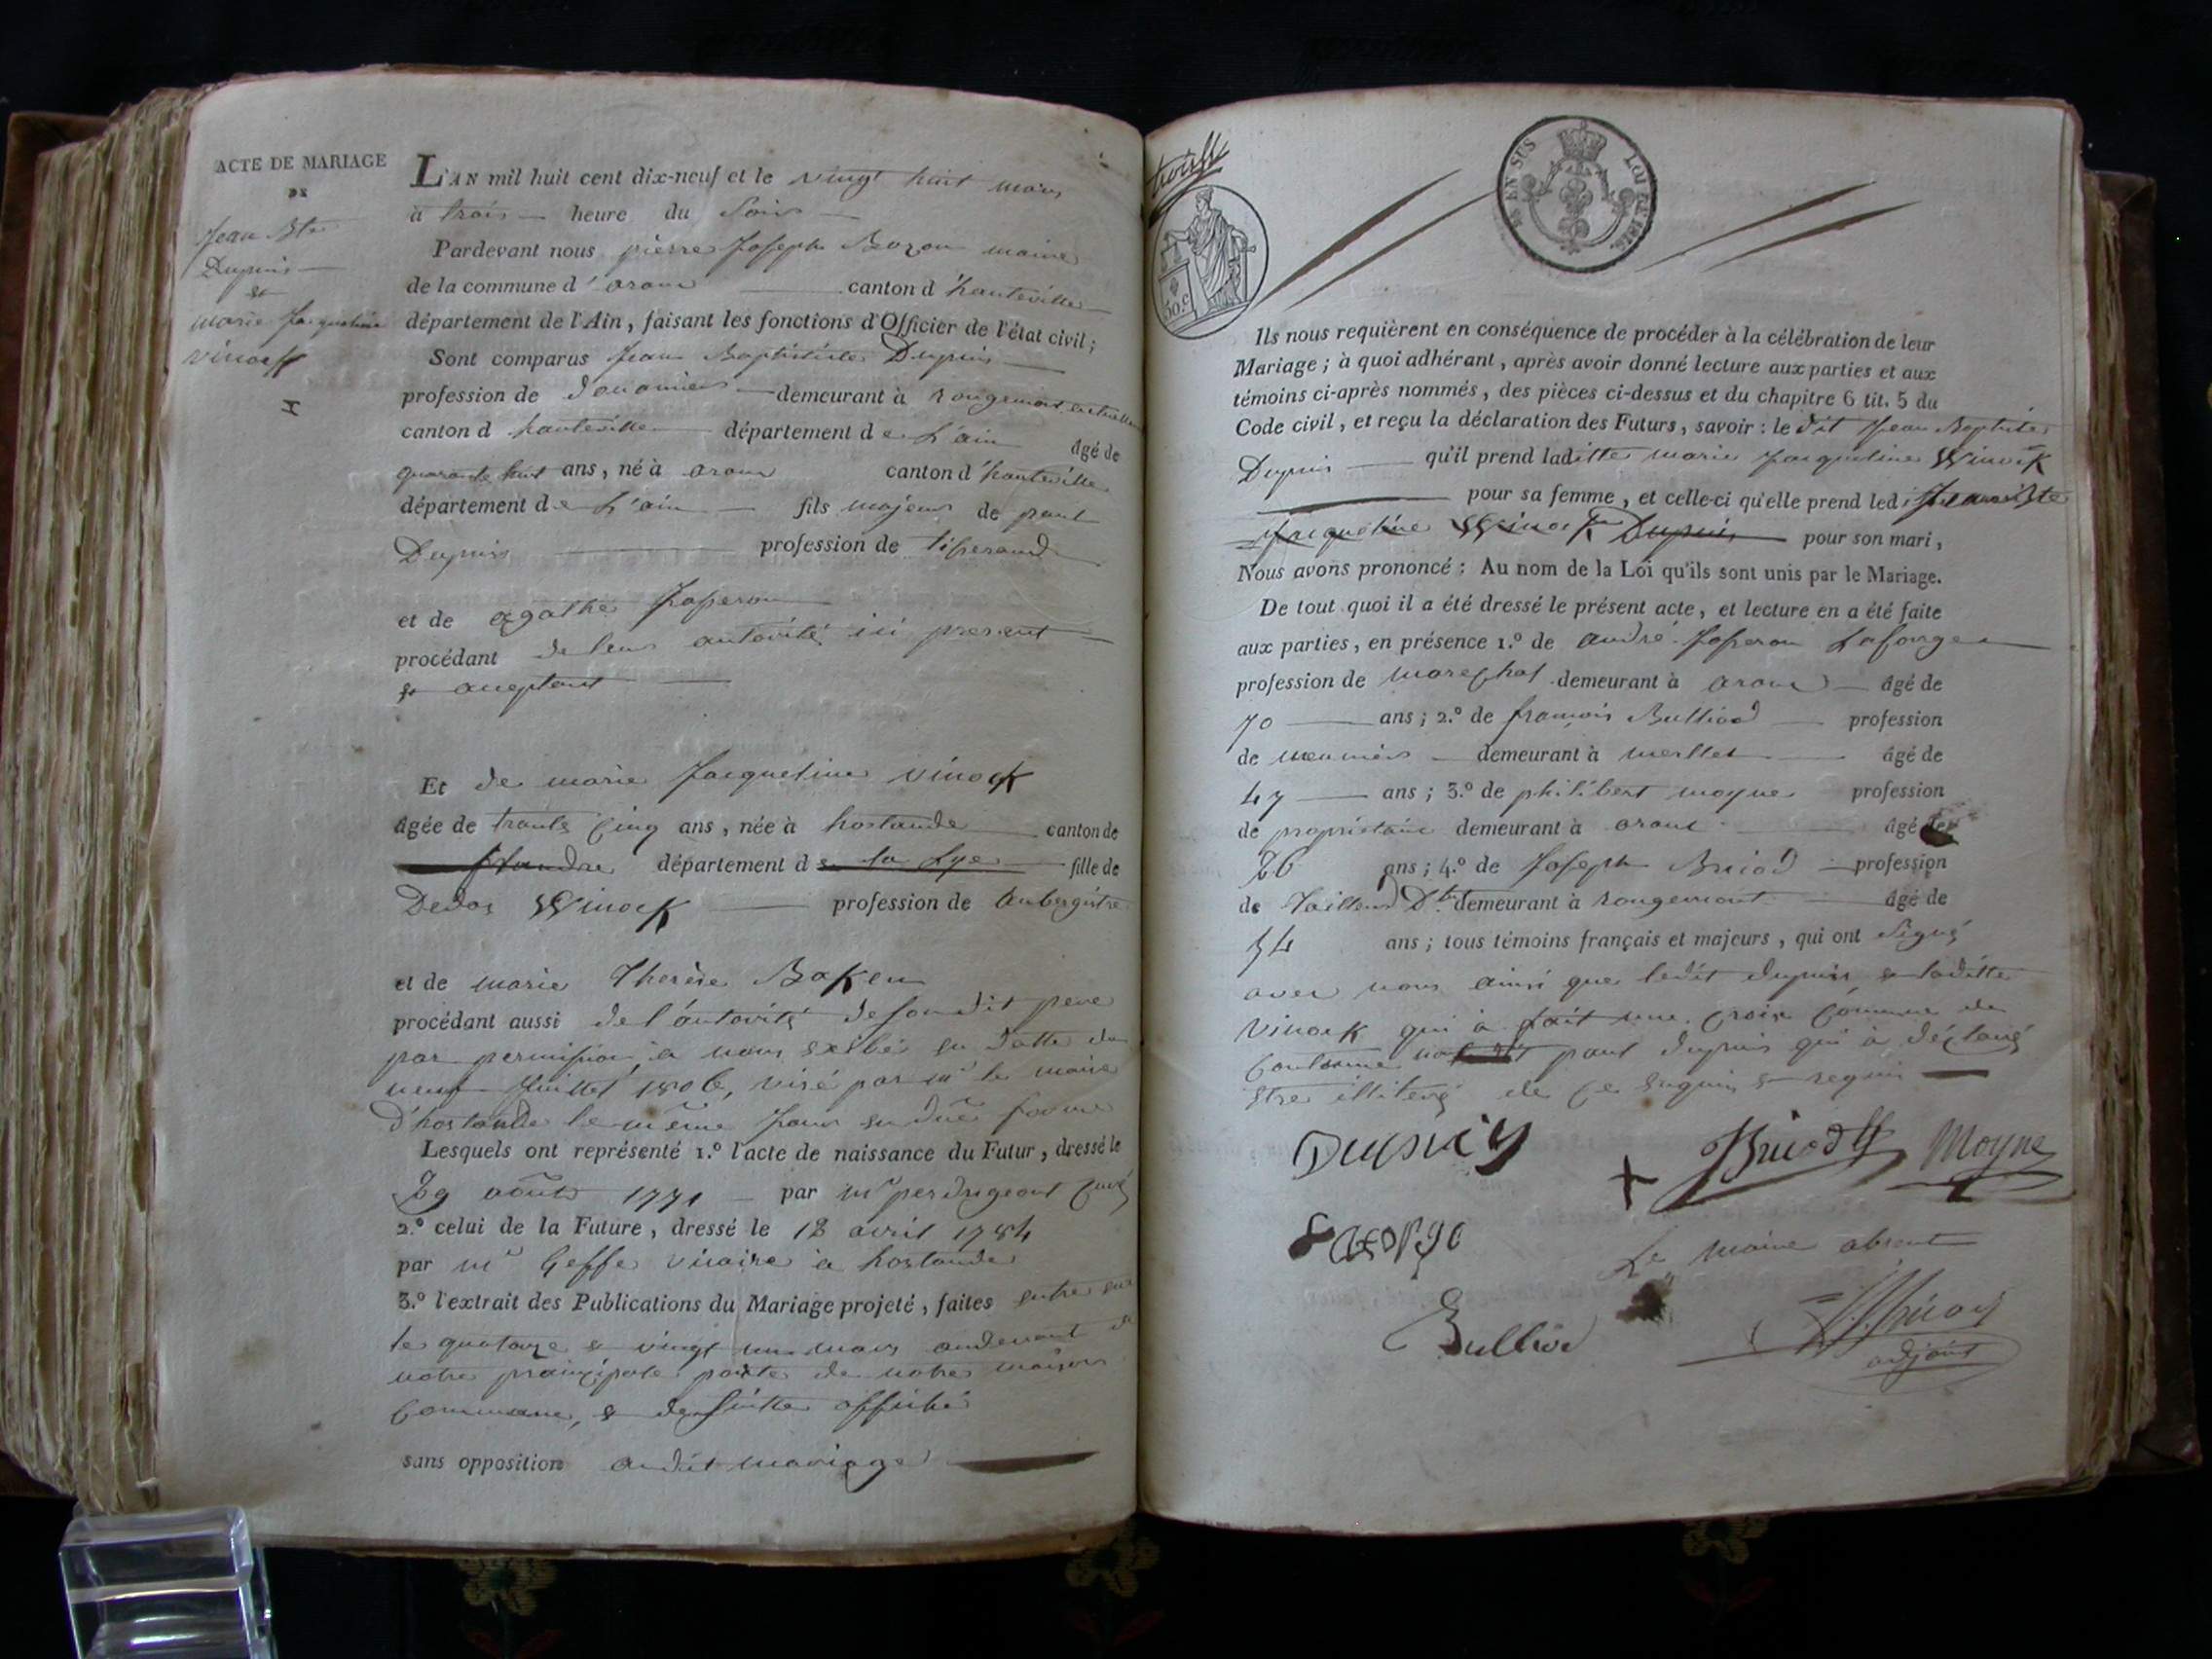 ACTE DE MARIAGE
DE
Jean Bte
Dupuis
et
marie Jacqueline
vinock
L'AN mil huit cent dix-neuf et le vingt huit mars
à trois heure du Soir
Pardevant nous pierre Joseph Bozon maire
de la commune d'aranc canton d'hauteville
département de l'Ain, faisant les fonctions d'Officier de l'état civil;
Sont comparus Jean Baptistte Dupuis
profession de douanier demeurant à rougemont
canton d hauteville département de L'ain âgé de
quarante huit ans, né à aranc canton d'hauteville
département de L'ain fils majeur de paul
Dupuis profession de tisserand
et de agathe Japeron
procédant de leur autorité ici present
et aceptant
Et de marie Jacqueline vinock
âgée de trante cinq ans, née à hostande canton de
flandre département de la Lye fille de
Dedos Winock profession de aubergiste
et de marie Therèse Baken
procédant aussi de l'autorité de son dit pere
par permission a nous exibé en datte du
neuf Juillet 1806, visé par mr le maire
d'hostande le même jour en due forme
Lesquels ont représenté 1.º l'acte de naissance du Futur, dressé le
29 août 1771 par mr perdrigeont curé
2.º celui de la Future, dressé le 18 avril 1784
par mr Geffe vicaire à hostande
3.º l'extrait des Publications du Mariage projeté, faites entre eux
le quatorze & vingt un mars audevant de
notre principale porte de notre maison
Commune, & de suitte affiché
sans opposition audit mariage
50.c
EN SUS
LOI DE 1816.
Ils nous requièrent en conséquence de procéder à la célébration de leur
Mariage; à quoi adhérant, après avoir donné lecture aux parties et aux
témoins ci-après nommés, des pièces ci-dessus et du chapitre 6 tit. 5 du
Code civil, et reçu la déclaration des Futurs, savoir: le dit Jean Baptiste
Dupuis qu'il prend laditte marie Jacqueline Winock
pour sa femme, et celle-ci qu'elle prend led. Jean Bte
Jacqueline Winock Dupuis pour son mari,
Nous avons prononcé: Au nom de la Loi qu'ils sont unis par le Mariage.
De tout quoi il a été dressé le présent acte, et lecture en a été faite
aux parties, en présence 1.º de andré Japeron Laforge
profession de marechal demeurant à aranc âgé de
70 ans; 2.º de françois Bulliod profession
de meunier demeurant à merllet âgé de
47 ans; 3.º de philibert moyne profession
de propriétaire demeurant à aranc âgé de
26 ans; 4.º de Joseph Bruod profession
de Tailleur D'h demeurant à rougemont âgé de
54 ans; tous témoins français et majeurs, qui ont signé
avec nous ainsi que ledit dupuis & laditte
Vinock qui à fait une croix comme de
Coutume paul dupuis qui à déclaré
être illiteré de ce enquis & requis
Dupuis
+
Moyne
Laforge
Le Maire absent
Bulliod
adjoint